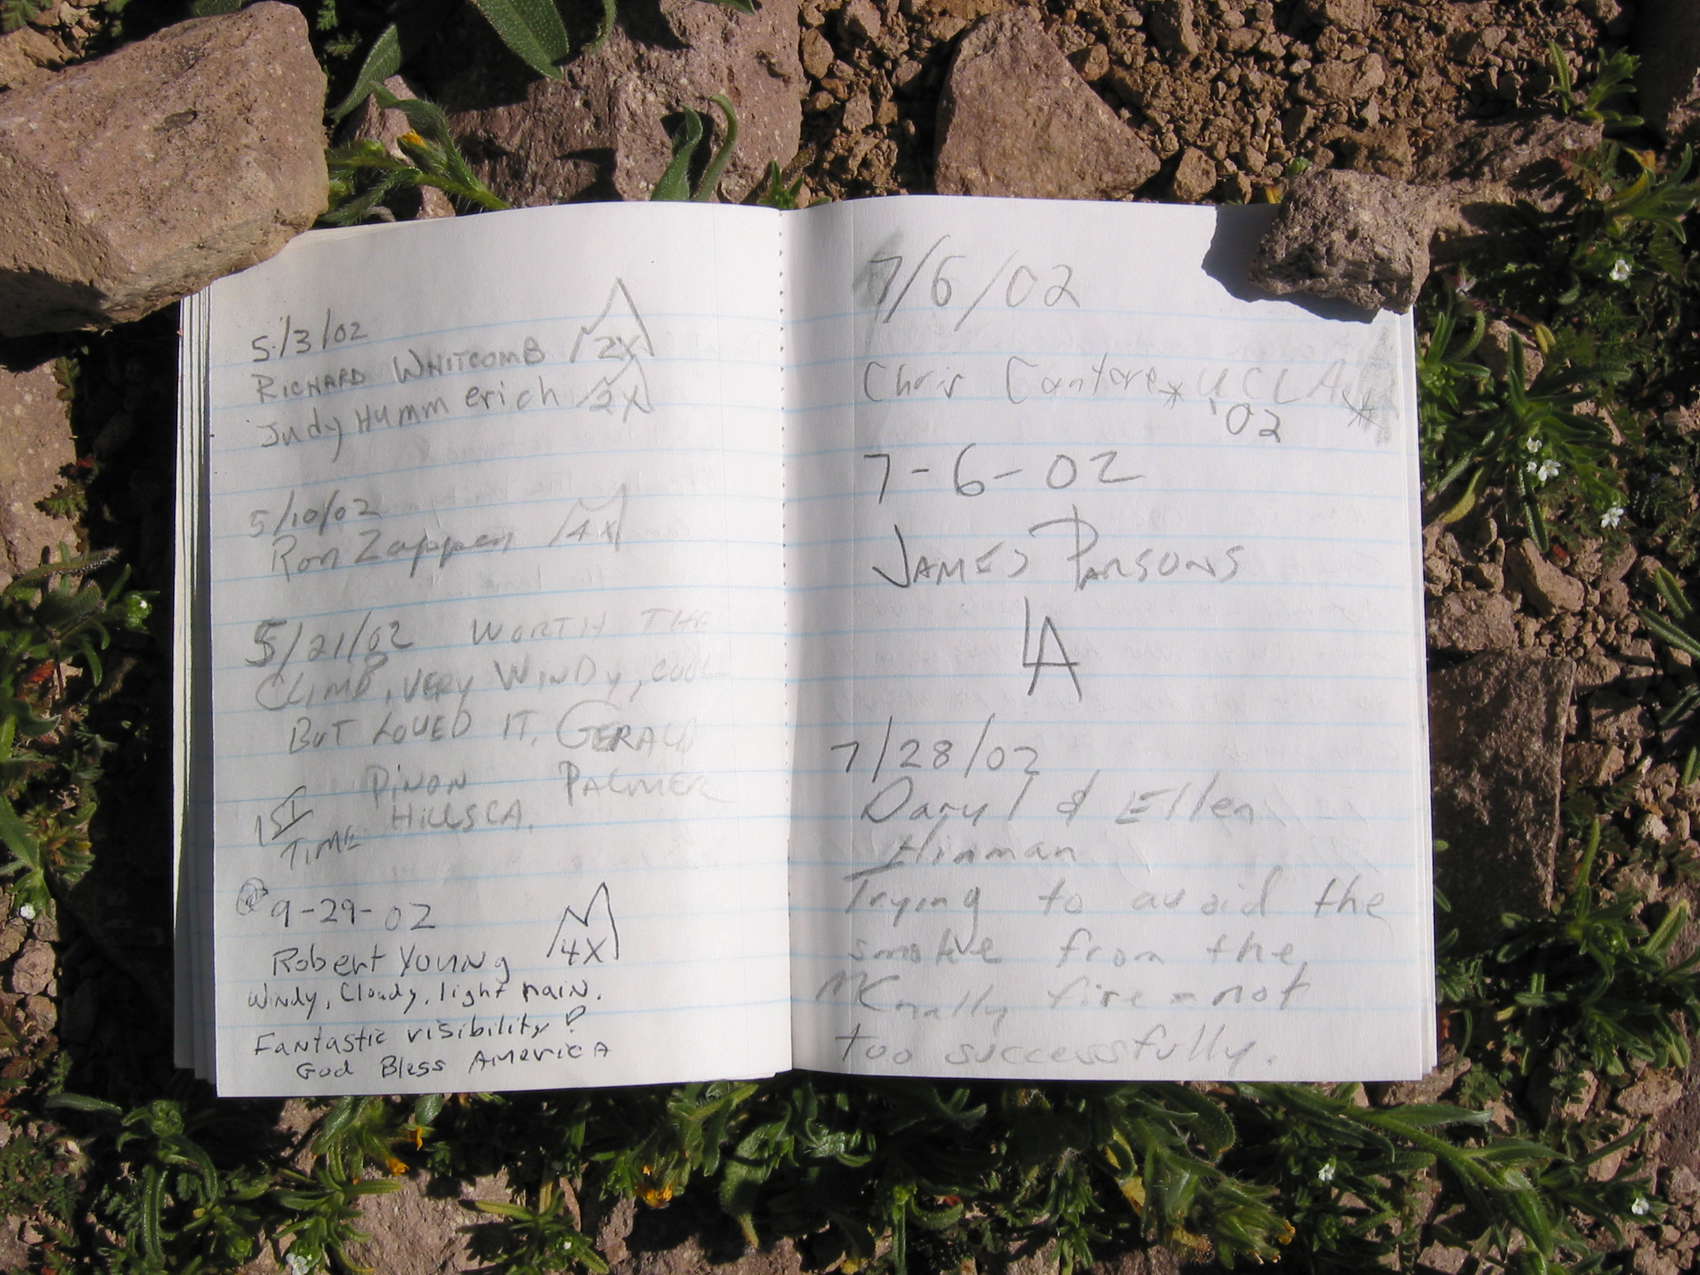 5/3/02
RICHARD WHITCOMB 2X
Judy Hummerich 2X
5/10/02
Ron Zappen 4X
5/21/02 WORTH THE
CLIMB, VERY WINDY, COOL
BUT LOVED IT. GERALD
PINON PALMER
1ST HILLS CA.
TIME
9-29-02
Robert Young 4X
Windy, Cloudy, light rain.
Fantastic visibility!
God Bless America
7/6/02
Chris Cantore * UCLA *
'02
7-6-02
JAMES PARSONS
LA
7/28/02
Daryl & Ellen
Hinman
Trying to avoid the
smoke from the
McNally fire - not
too successfully.